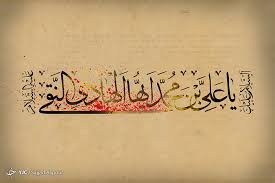 السلام علیک
یا عَلِیَّ بْنَ مُحَمَّدٍ اَیُّهَا الْهادی النَّقی